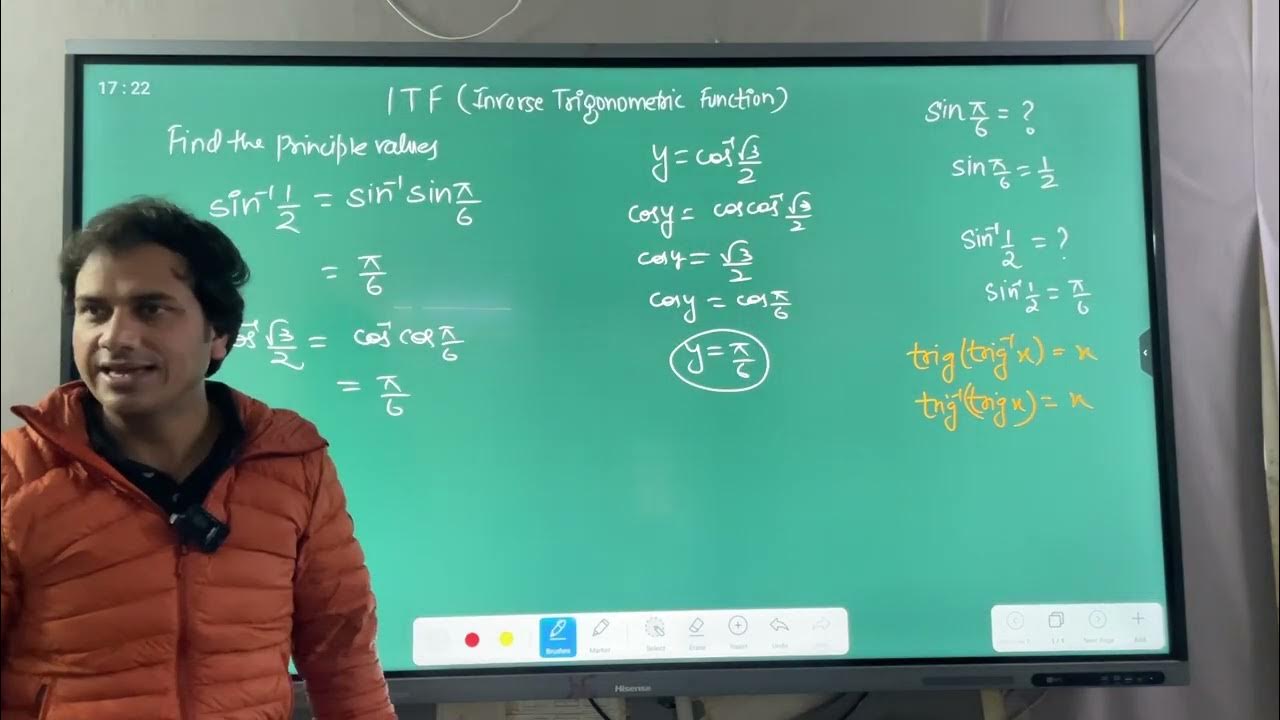 17:22
ITF (Inverse Trigonometric Function)
Find the principle values
sin⁻¹ 1/2 = sin⁻¹ sin π/6
= π/6
cos⁻¹ √3/2 = cos⁻¹ cos π/6
= π/6
y = cos⁻¹ √3/2
cos y = cos cos⁻¹ √3/2
cos y = √3/2
cos y = cos π/6
y = π/6
sin π/6 = ?
sin π/6 = 1/2
sin⁻¹ 1/2 = ?
sin⁻¹ 1/2 = π/6
trig (trig⁻¹ x) = x
trig⁻¹ (trig x) = x
Brushes Marker Select Erase Insert Undo
1/1 Next Page Add
Hisense